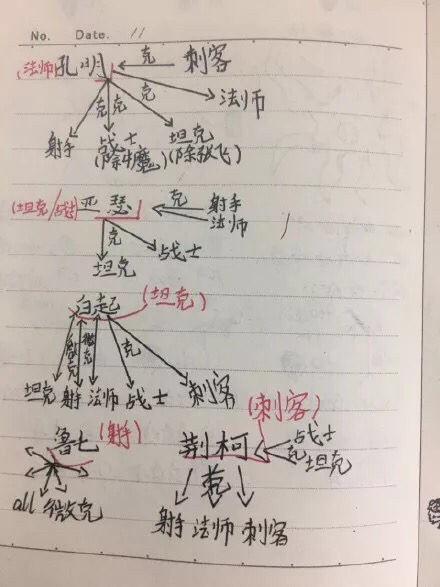 No.
Date. 11
(法师)孔明 克 刺客
克 克 克 法师
射手 战士 坦克
(除牛魔) (除张飞)
(坦克/战士) 亚瑟 克 射手
法师
克 战士
坦克
白起 (坦克)
微克 克
坦克 射手 法师 战士 刺客
鲁七 (射手) (刺客)
荆柯 克 战士
坦克
克
all 微克
射手 法师 刺客